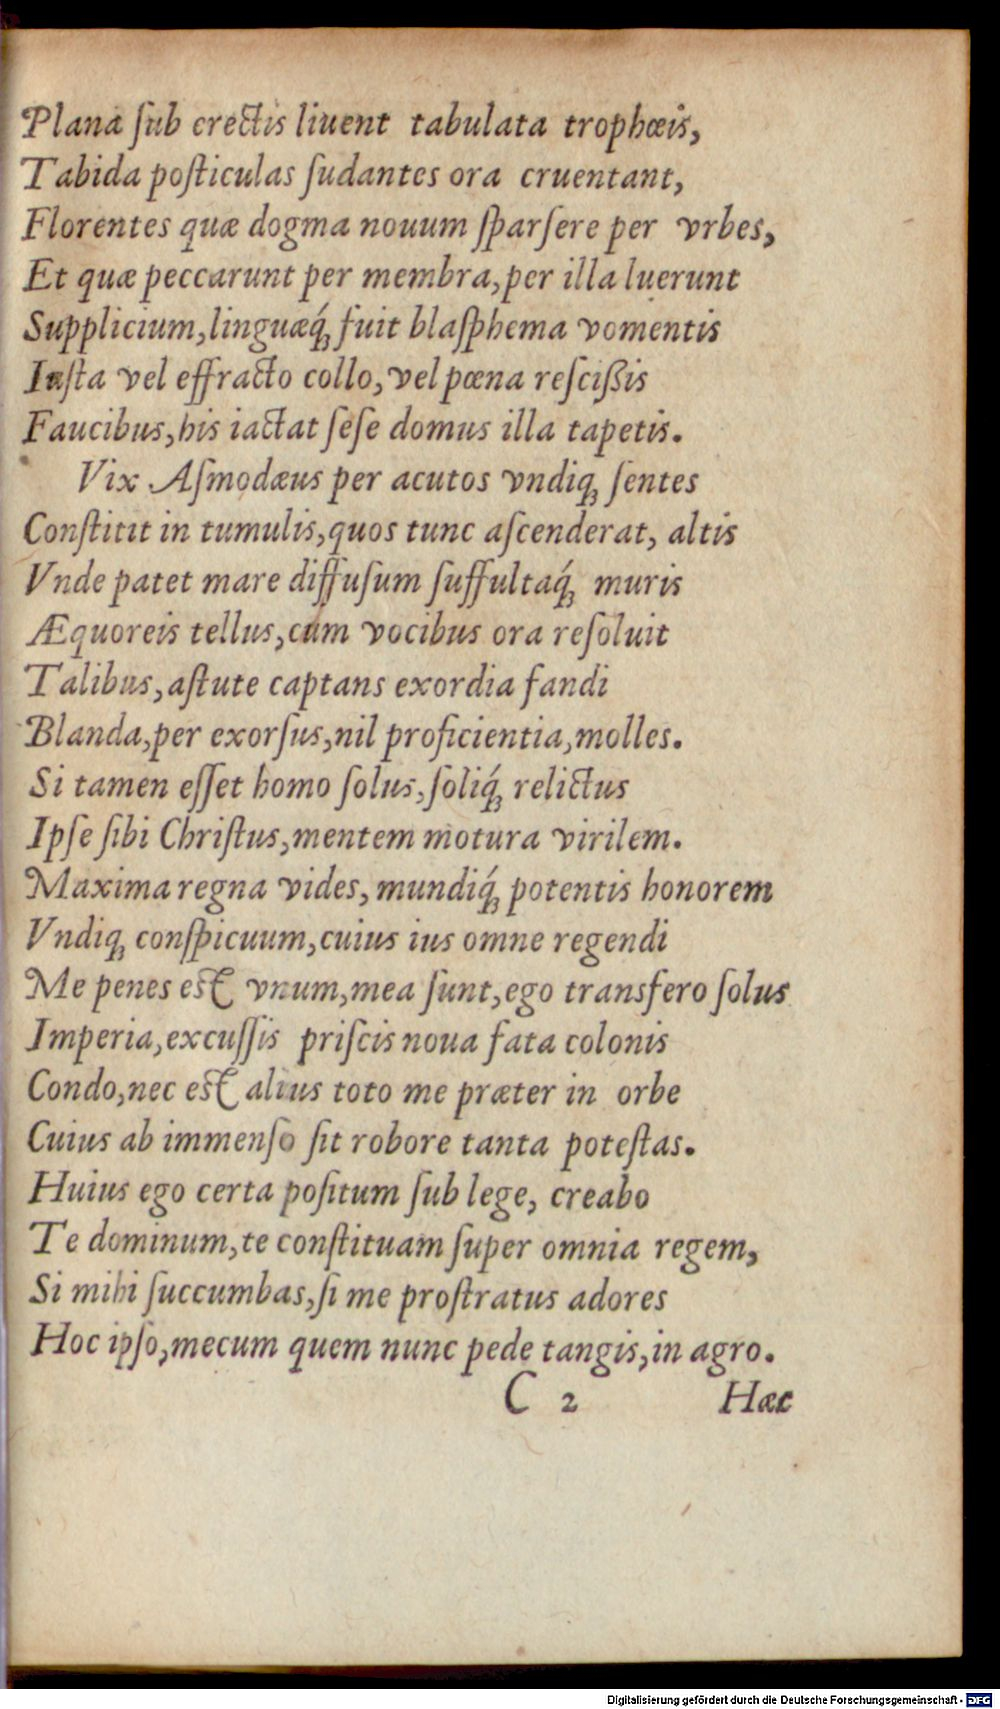 Plana ſub erectis liuent tabulata trophœis,
Tabida poſticulas ſudantes ora cruentant,
Florentes quæ dogma nouum ſparſere per vrbes,
Et quæ peccarunt per membra, per illa luerunt
Supplicium, linguæq́ꝫ fuit blaſphema vomentis
Iuſta vel effracto collo, vel pœna reſciſsis
Faucibus, his iactat ſeſe domus illa tapetis.
Vix Aſmodæus per acutos vndiqꝫ ſentes
Conſtitit in tumulis, quos tunc aſcenderat, altis
Vnde patet mare diffuſum ſuffultaq́ꝫ muris
Æquoreis tellus, cum vocibus ora reſoluit
Talibus, aſtute captans exordia fandi
Blanda, per exorſus, nil proficientia, molles.
Si tamen eſſet homo ſolus, ſoliq́ꝫ relictus
Ipſe ſibi Chriſtus, mentem motura virilem.
Maxima regna vides, mundiq́ꝫ potentis honorem
Vndiqꝫ conſpicuum, cuius ius omne regendi
Me penes est vnum, mea ſunt, ego transfero ſolus
Imperia, excuſſis priſcis noua fata colonis
Condo, nec est alius toto me præter in orbe
Cuius ab immenſo ſit robore tanta poteſtas.
Huius ego certa poſitum ſub lege, creabo
Te dominum, te conſtituam ſuper omnia regem,
Si mihi ſuccumbas, ſi me proſtratus adores
Hoc ipſo, mecum quem nunc pede tangis, in agro.
C 2 Hæc
Digitalisierung gefördert durch die Deutsche Forschungsgemeinschaft - DFG